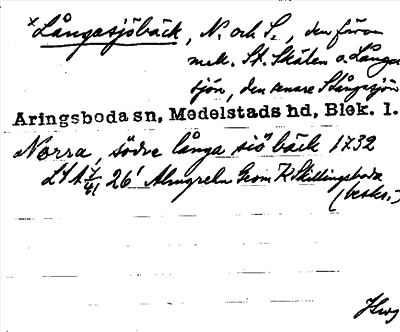 ×Långasjöbäck, N. och S., den förra
mell. St. Skälen o. Långa
sjön, den senare St Långasjön
Aringsboda sn, Medelstads hd, Blek. l.
Norra, södre långa siö bäck 1732
LSA 26' Almgrehn Geom K Skillingsboda
(beskr.)